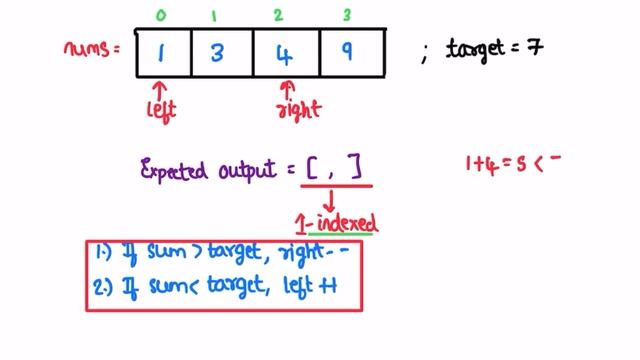 0 1 2 3
nums = 1 3 4 9 ; target = 7
left right
Expected output = [ , ]
1+4=5 <
1-indexed
1.) If sum > target, right--
2.) If sum < target, left ++